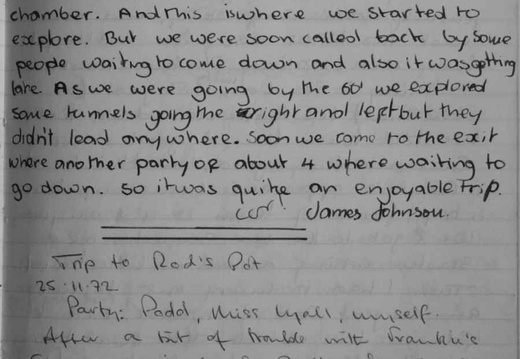 chamber. And This is where we started to
explore. But we were soon called back by some
people waiting to come down and also it was getting
late. As we were going by the 60' we explored
some tunnels going the right and left but they
didn't lead anywhere. Soon we came to the exit
where another party of about 4 where waiting to
go down. so it was quite an enjoyable Trip.
James Johnson.
Trip to Rod's Pot
25.11.72
Party: Podd, Miss Lyall, myself.
After a bit of trouble with Frankie's